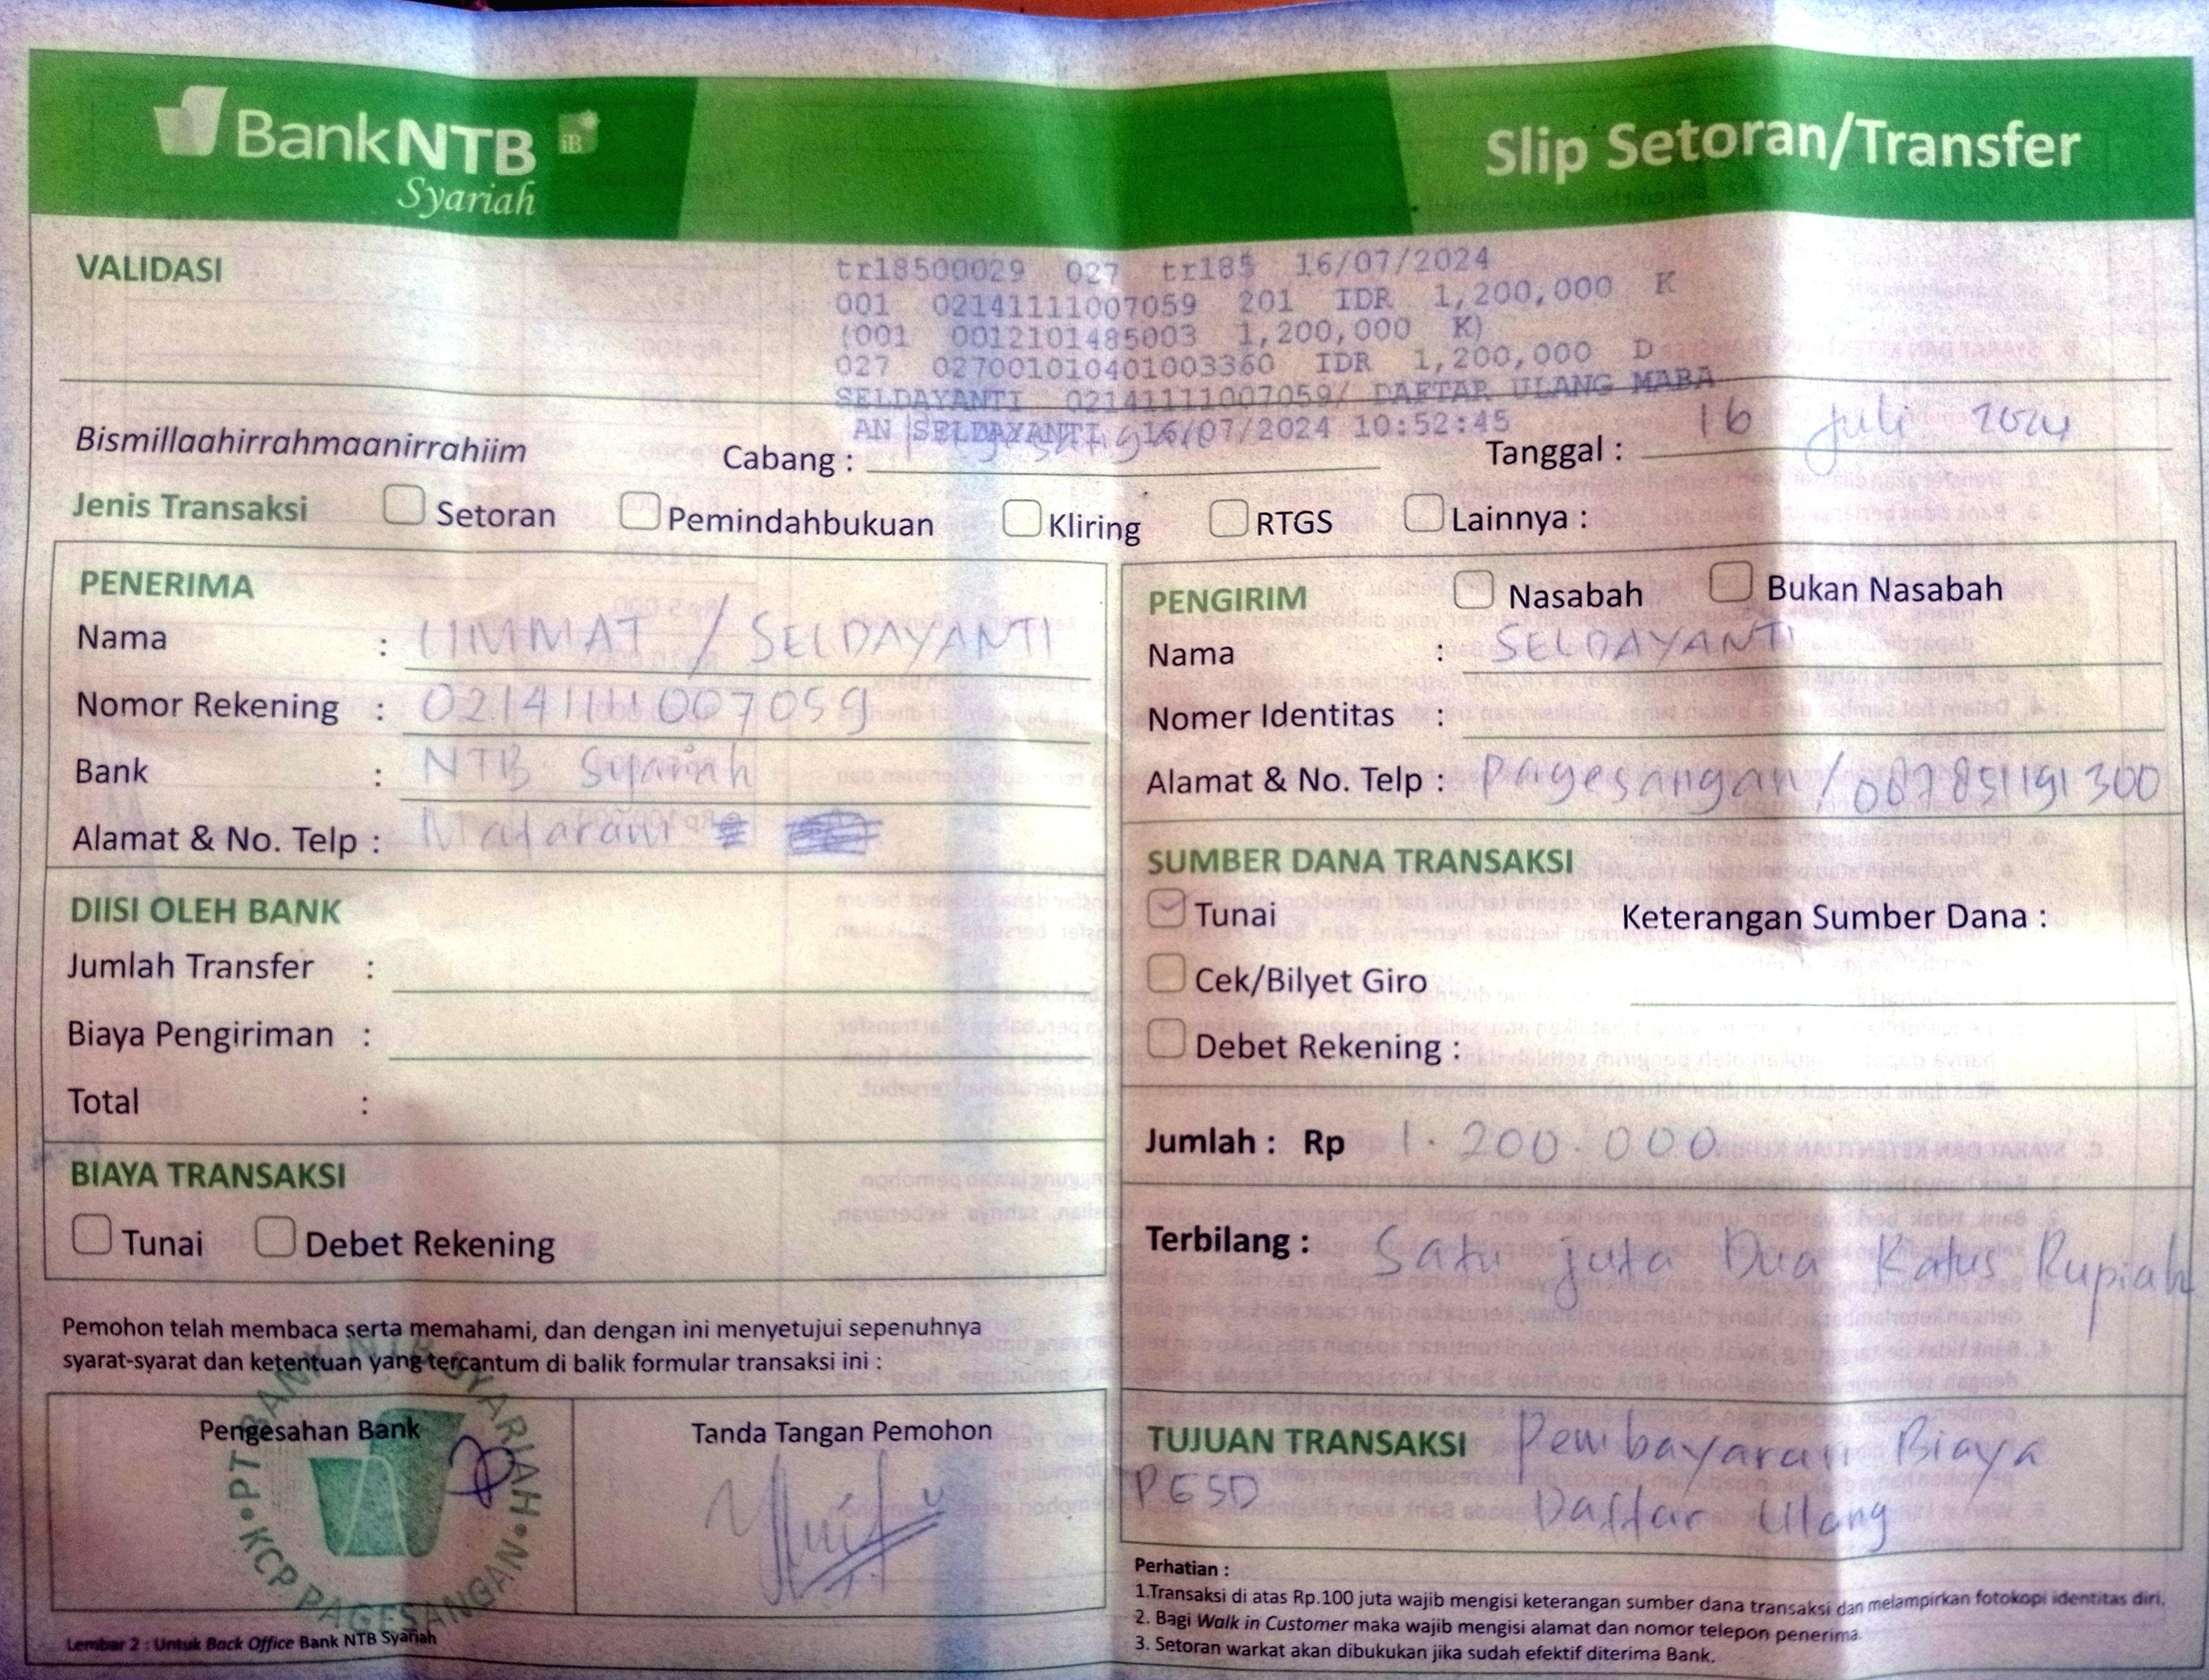 BankNTB iB
Syariah
Slip Setoran/Transfer
VALIDASI
tr18500029 027 tr185 16/07/2024
001 02141111007059 201 IDR 1,200,000 K
(001 0012101485003 1,200,000 K)
027 027001010401003360 IDR 1,200,000 D
SELDAYANTI 02141111007059/ DAFTAR ULANG MABA
AN SELDAYANTI 16/07/2024 10:52:45
Bismillaahirrahmaanirrahiim Cabang : Pagesangan Tanggal : 16 Juli 2024
Jenis Transaksi Setoran Pemindahbukuan Kliring RTGS Lainnya :
PENERIMA
Nama : UMMAT / SELDAYANTI
Nomor Rekening : 02141111007059
Bank : NTB Syariah
Alamat & No. Telp : Mataram
DIISI OLEH BANK
Jumlah Transfer :
Biaya Pengiriman :
Total :
BIAYA TRANSAKSI
Tunai Debet Rekening
Pemohon telah membaca serta memahami, dan dengan ini menyetujui sepenuhnya
syarat-syarat dan ketentuan yang tercantum di balik formular transaksi ini :
Pengesahan Bank
PT BANK NTB SYARIAH
KCP PAGESANGAN
Tanda Tangan Pemohon
Lembar 2 : Untuk Back Office Bank NTB Syariah
PENGIRIM Nasabah Bukan Nasabah
Nama : SELDAYANTI
Nomer Identitas :
Alamat & No. Telp : Pagesangan / 087851191300
SUMBER DANA TRANSAKSI
Tunai Keterangan Sumber Dana :
Cek/Bilyet Giro
Debet Rekening :
Jumlah : Rp 1.200.000
Terbilang : Satu juta Dua Ratus Rupiah
TUJUAN TRANSAKSI Pembayaran Biaya
PGSD Daftar Ulang
Perhatian :
1.Transaksi di atas Rp.100 juta wajib mengisi keterangan sumber dana transaksi dan melampirkan fotokopi identitas diri.
2. Bagi Walk in Customer maka wajib mengisi alamat dan nomor telepon penerima.
3. Setoran warkat akan dibukukan jika sudah efektif diterima Bank.